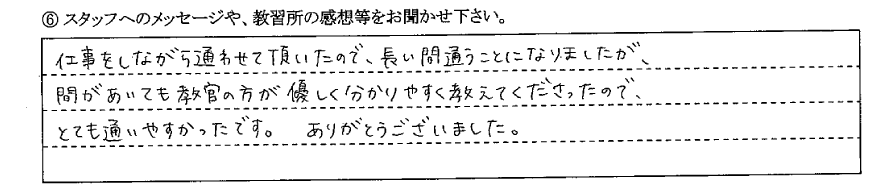 ⑥ スタッフへのメッセージや、教習所の感想等をお聞かせ下さい。
仕事をしながら通わせて頂いたので、長い間通うことになりましたが、
間があいても教官の方が優しく分かりやすく教えてくださったので、
とても通いやすかったです。 ありがとうございました。